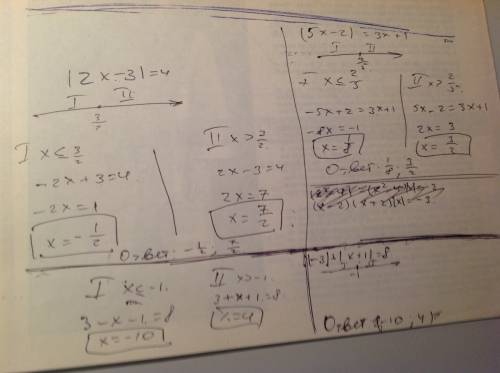 |2x-3|=4
I II
3/2
I x ≤ 3/2
-2x+3=4
-2x=1
x=-1/2
II x > 3/2
2x-3=4
2x=7
x=7/2
Ответ: -1/2; 7/2
|5x-2|=3x+1
I II
I x ≤ 2/5
-5x+2=3x+1
-8x=-1
x=1/8
II x > 2/5
5x-2=3x+1
2x=3
x=3/2
Ответ: 1/8; 3/2
(x-2)(x+2)|x|=-3
|-3|+|x+1|=8
-1
I x ≤ -1
3-x-1=8
x=-10
II x>-1
3+x+1=8
x=4
Ответ {-10; 4}